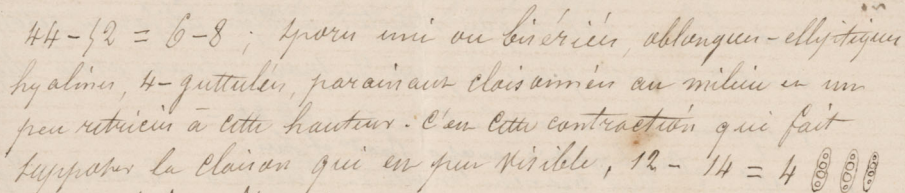 44-52 = 6-8 ; spores uni ou bisériées, oblongues-elliptiques
hyalines, 4-guttulées, paraissant cloisonnées au milieu et un
peu rétrécies à cette hauteur. C'est cette contraction qui fait
supposer la cloison qui est peu visible, 12-14 = 4